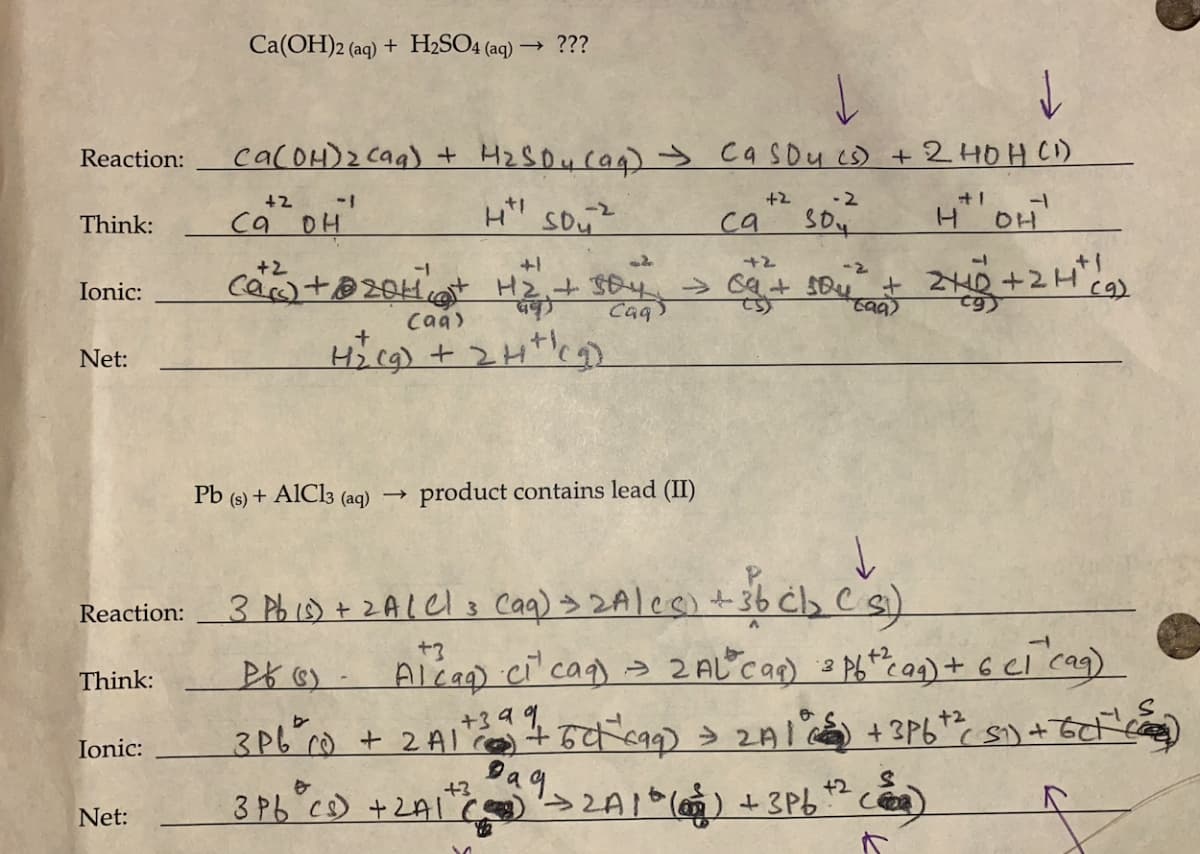 Ca(OH)2 (aq) + H2SO4 (aq) → ???
Reaction: Ca(OH)2 (aq) + H2SO4 (aq) → CaSO4 (s) + 2 HOH (l)
Think: Ca+2 OH-1 H+1 SO4-2 Ca+2 SO4-2 H+1 OH-1
Ionic: Ca+2(s) + 2OH-1(aq) + H2+1(aq) + SO4-2(aq) → Ca+2(s) + SO4-2(aq) + 2 -1(g) + 2H+1(g)
Net: H2+(g) + 2H+1(g)
Pb (s) + AlCl3 (aq) → product contains lead (II)
Reaction: 3 Pb (s) + 2AlCl3 (aq) → 2Al(s) + 3Pb Cl2 (s)
Think: Pb (s) - Al+3(aq) Cl-1(aq) → 2 Al0(aq) 3 Pb+2(aq) + 6 Cl-1(aq)
Ionic: 3Pb0(s) + 2Al+3(aq) + 6Cl-1(aq) → 2Al0(s) + 3Pb+2(s) + 6Cl-1(s)
Net: 3Pb0(s) + 2Al+3(aq) → 2Al0(s) + 3Pb+2(s)